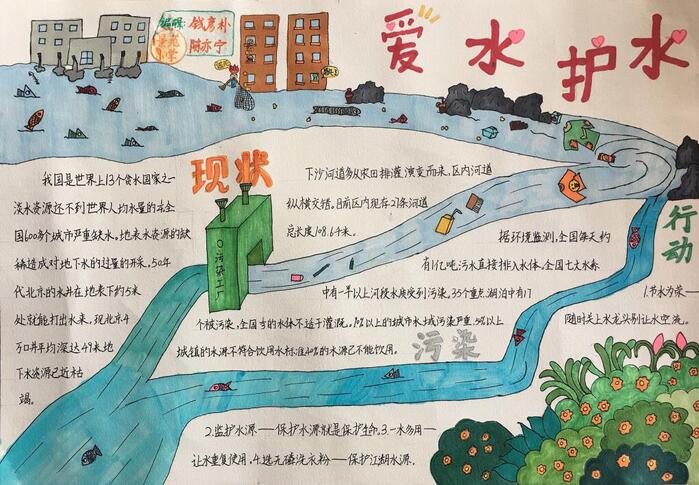 编辑：钱彦朴
陈亦宁
爱水护水
现状
我国是世界上13个贫水国家之一
淡水资源还不到世界人均水量的
国600多个城市严重缺水。地表水资源的缺
稀造成对地下水的过量的开采，50年
代北京的水井在地表下约5米
处就能打出水来，现北京4
万口井平均深达49米地
下水资源已近枯
竭。
下沙河道多从农田排灌演变而来，区内河道
纵横交错。目前区内现在21条河道
总长度108.64米。
污染工厂
据环境监测，全国每天约
有1亿吨污水直接排入水体，全国七大水系
中有一半以上河段水质受到污染。35个重点湖泊中有17
个被污染，全国 的水体不适于灌溉，
城镇的水源不符合饮用水标准40%的水源已不能饮用。
污染
行动
1.节水为荣——
随时关上水龙头别让水空流。
2.监护水源——保护水源就是保护 3.一水多用——
让水重复使用，4.选无磷洗衣粉——保护江湖水源。